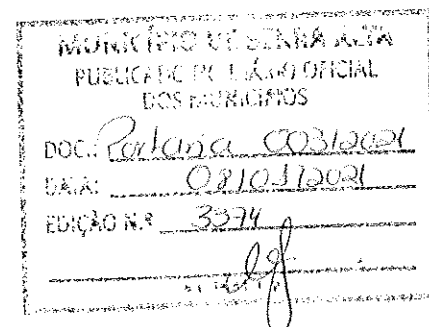 MUNICÍPIO DE SERRA ALTA
PUBLICADO NO DIÁRIO OFICIAL
DOS MUNICÍPIOS
DOC.: Portaria 003/2021
DATA: 08/01/2021
EDIÇÃO N.º 3374